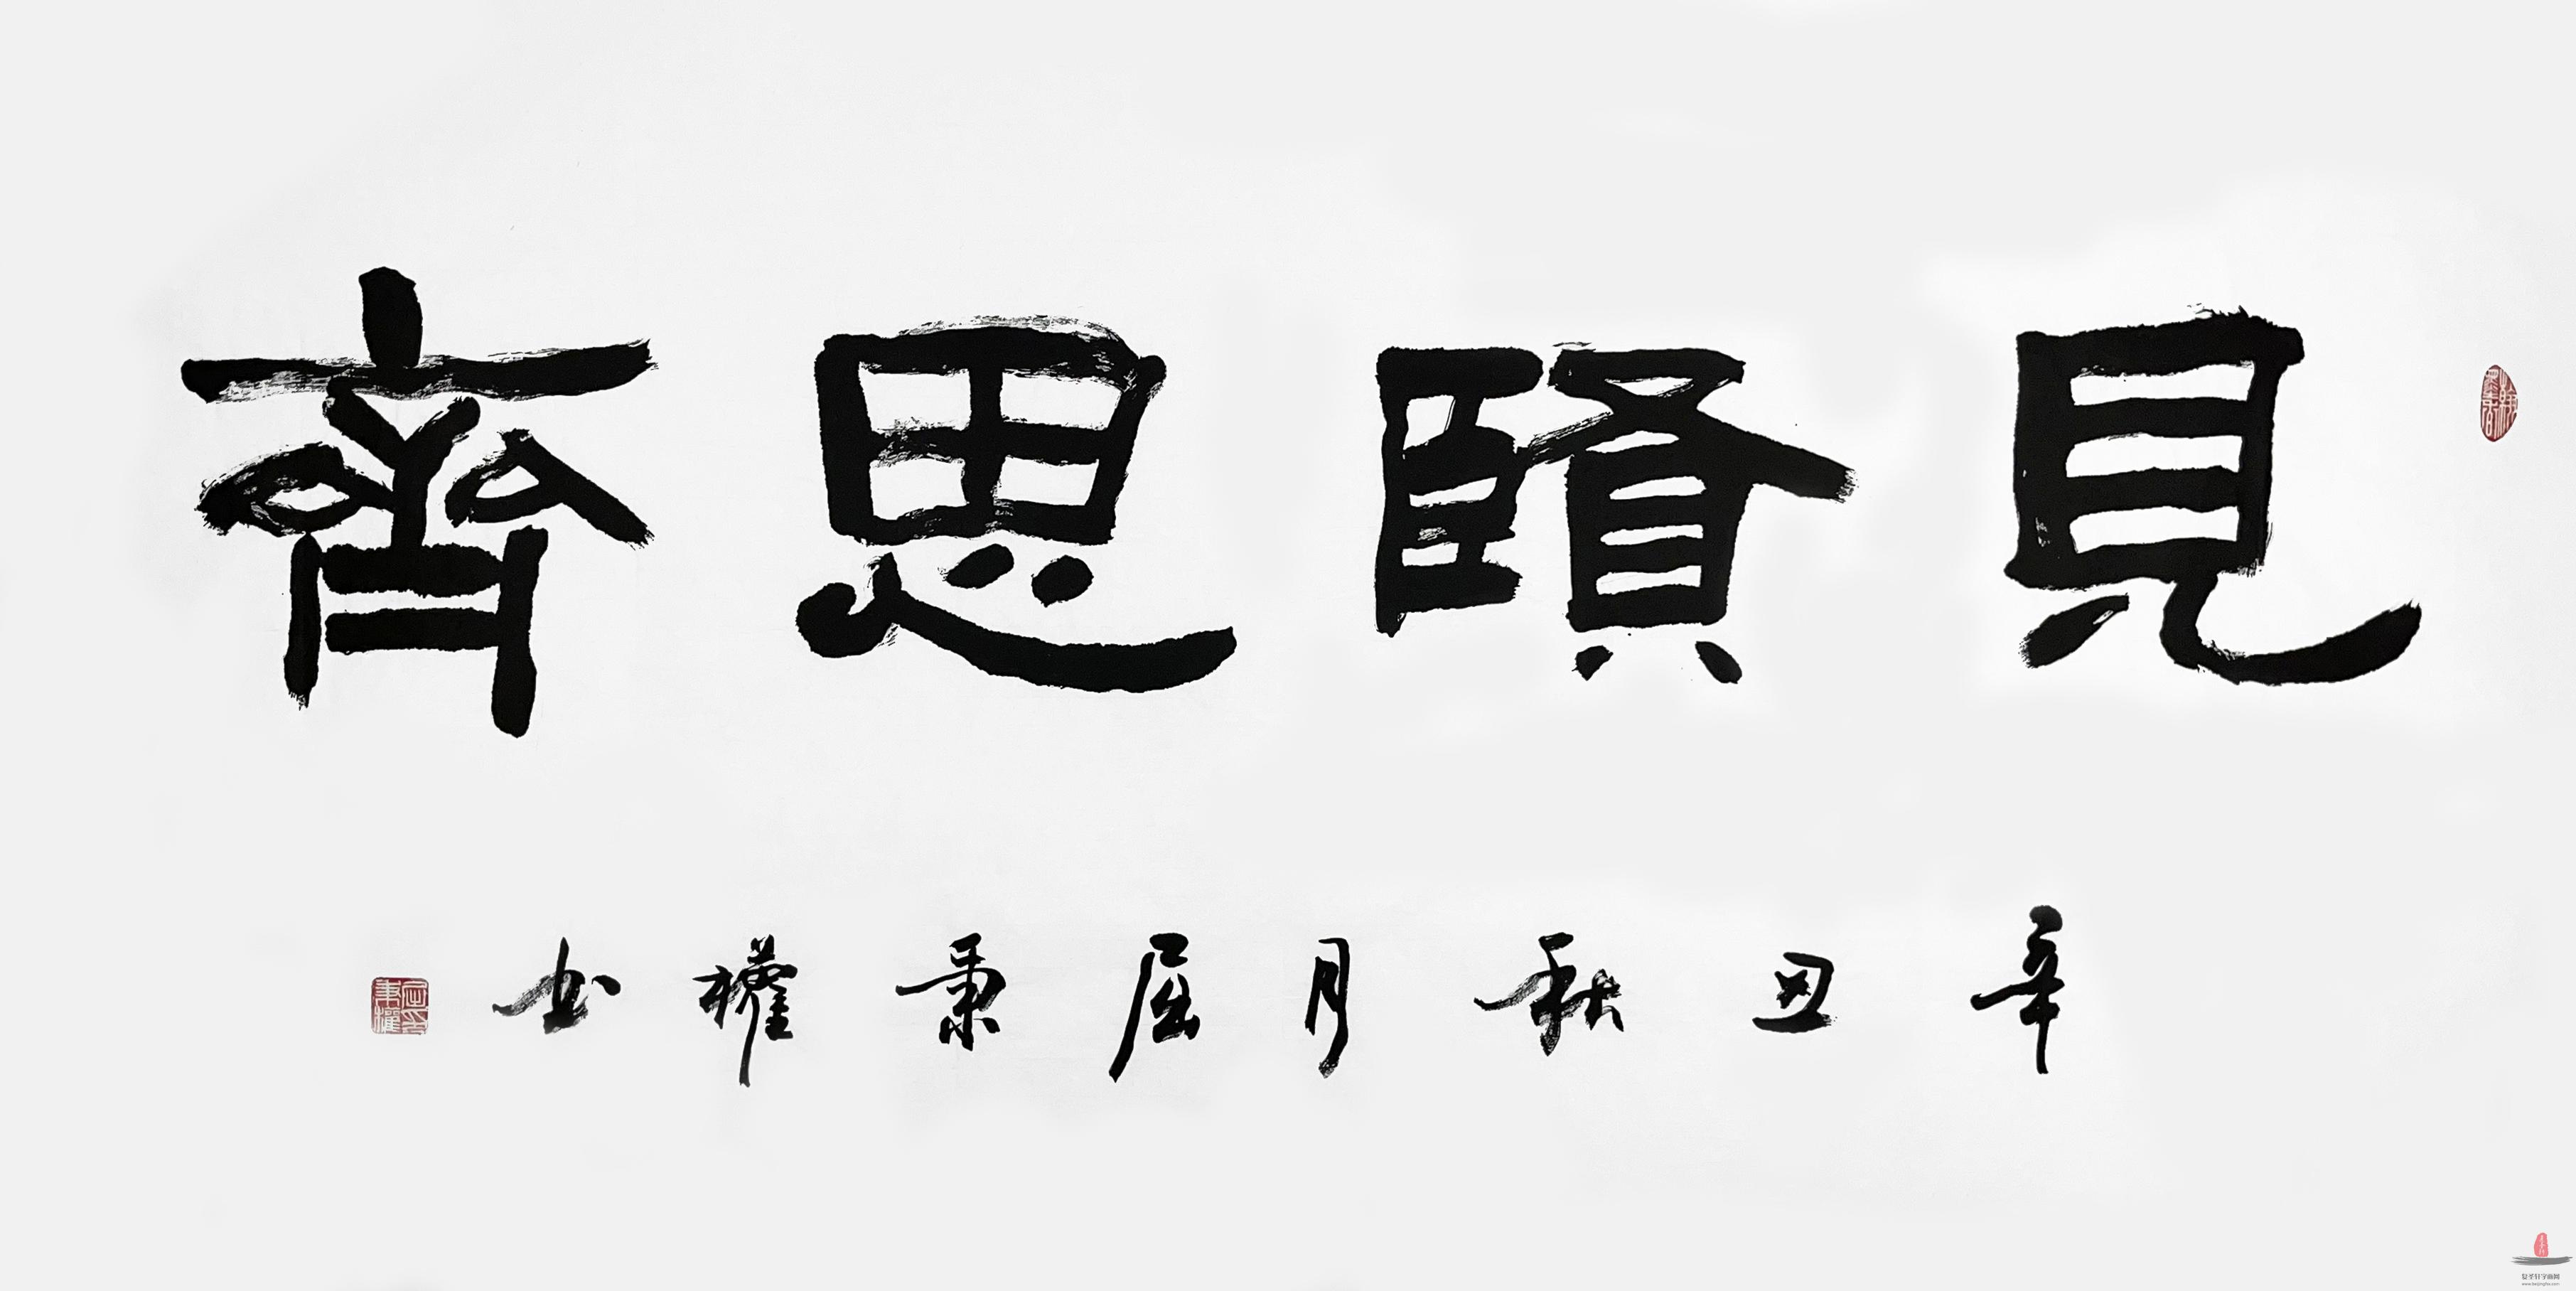 見賢思齊
辛丑秋月屈秉權书